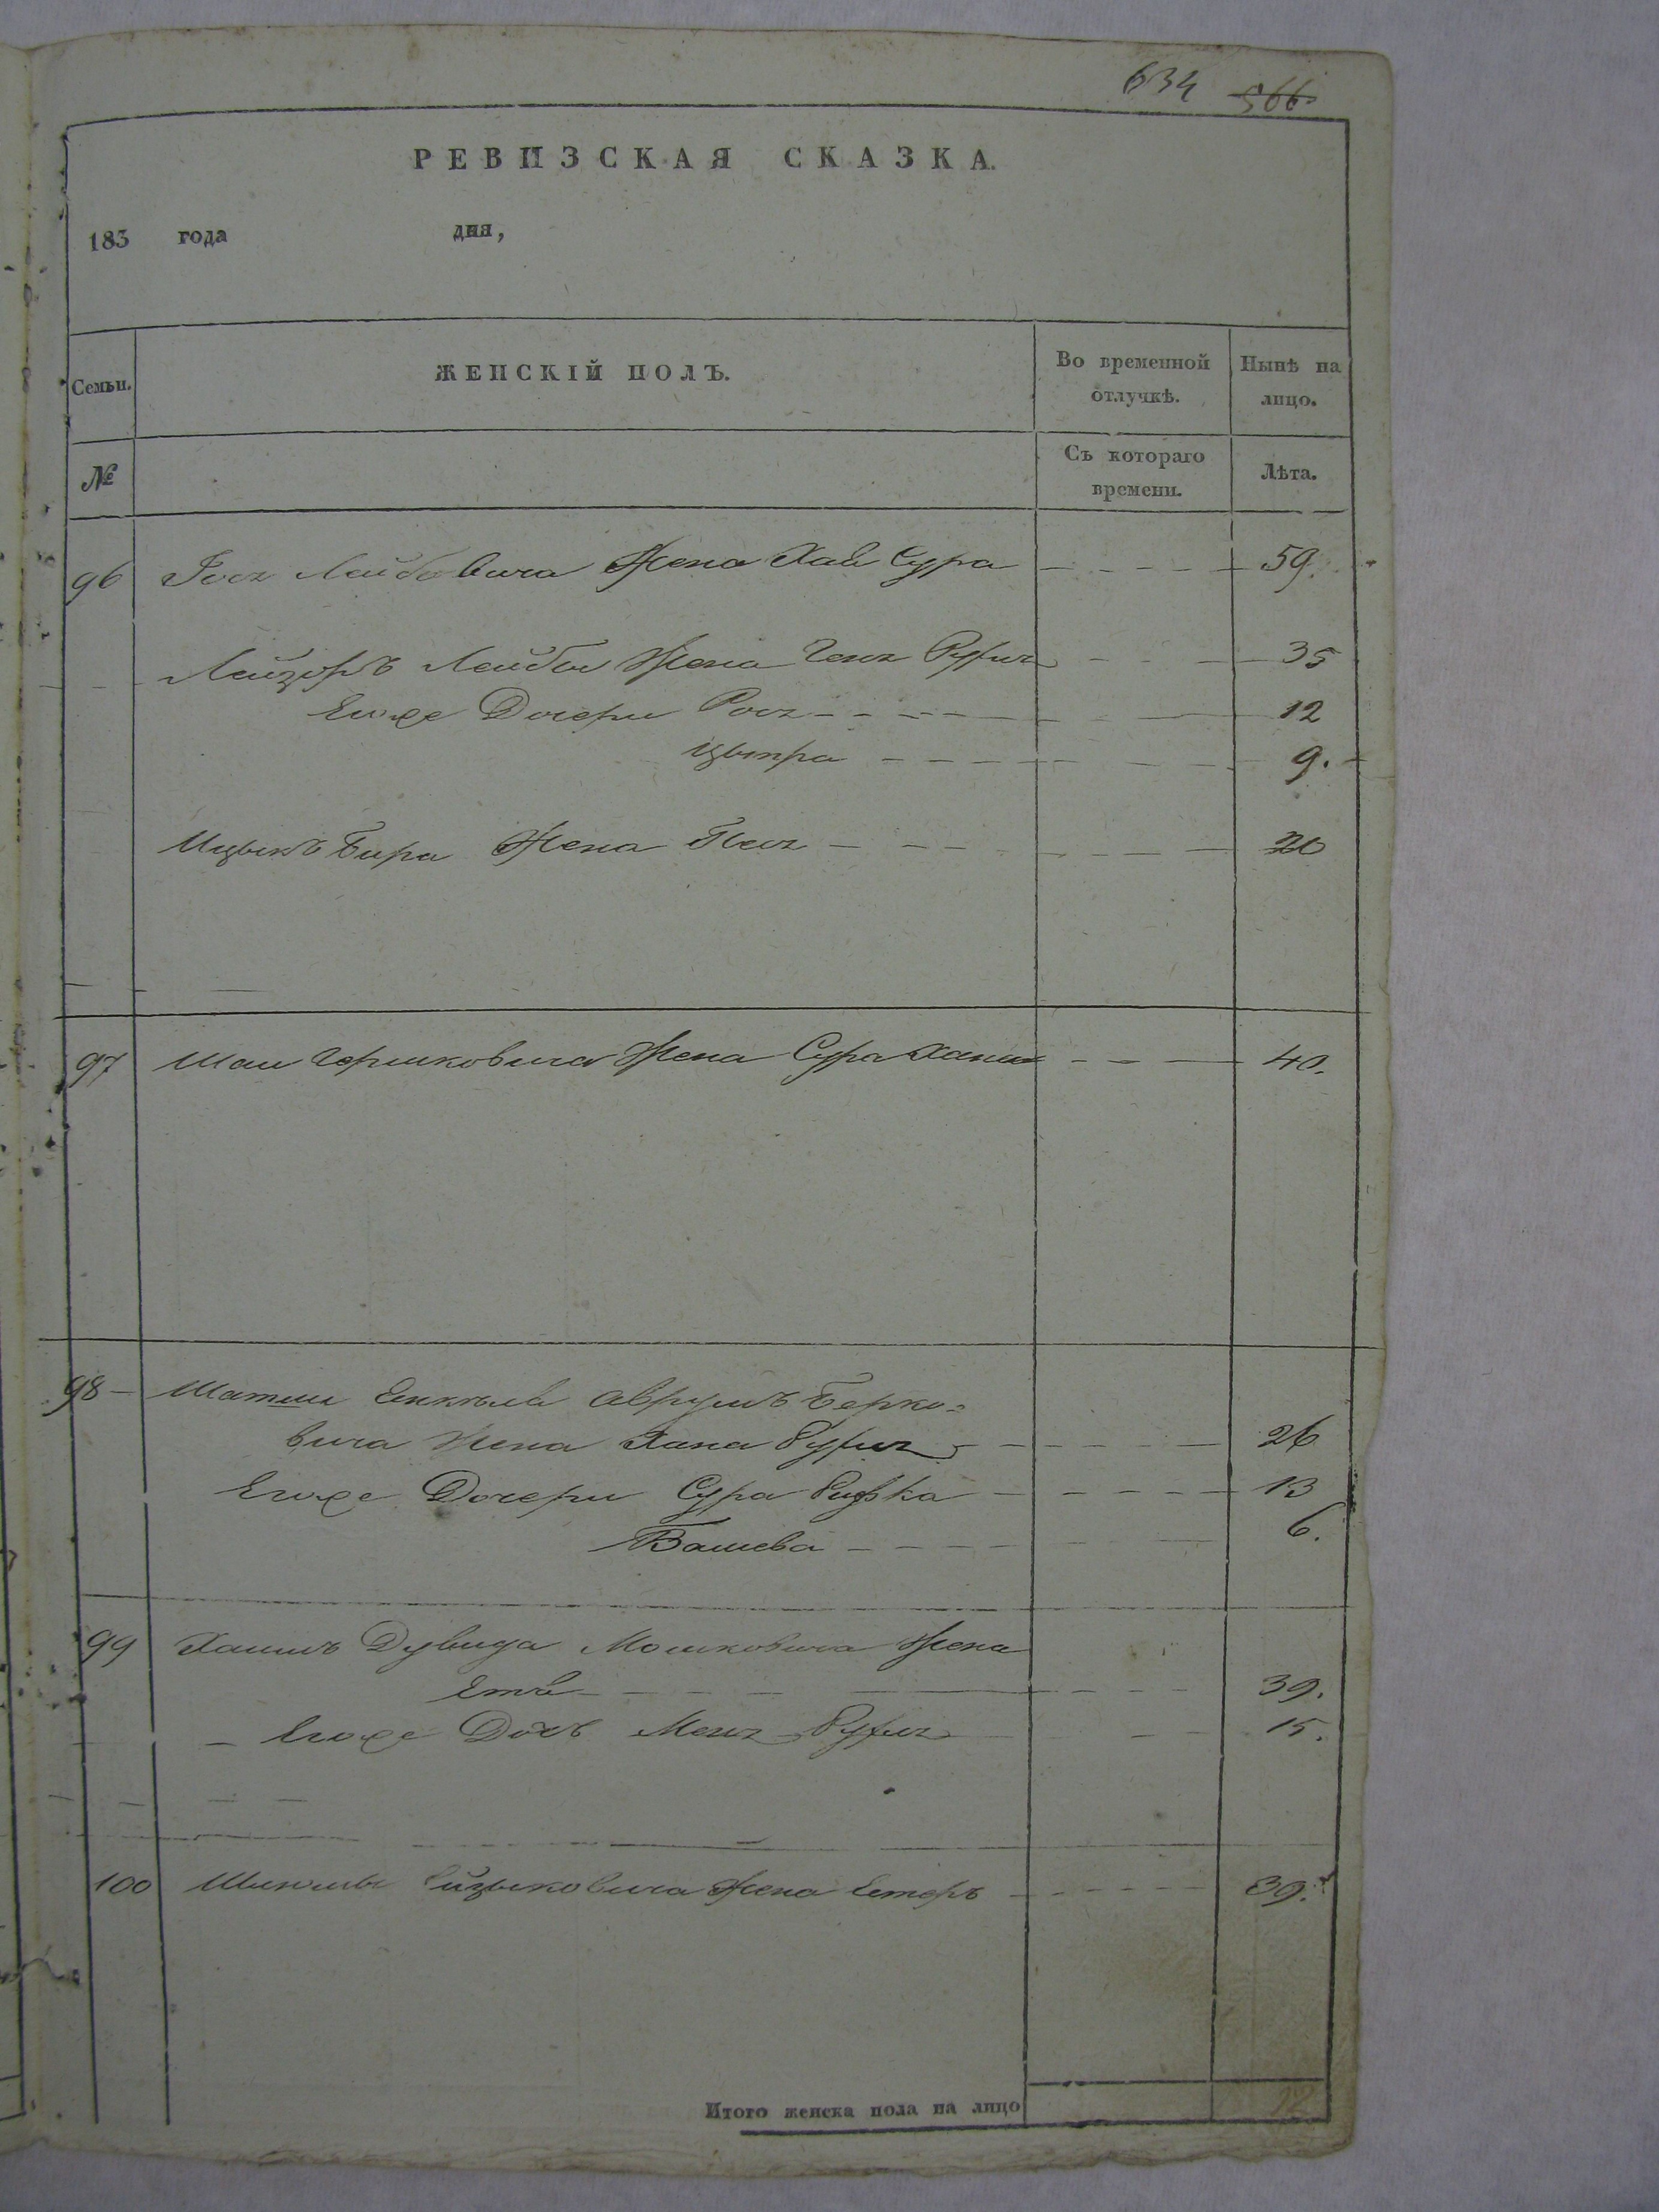 634 566.
РЕВИЗСКАЯ СКАЗКА.
183 года дня,
Семьи. ЖЕНСКІЙ ПОЛЪ. Во временной отлучкѣ. Нынѣ на лицо.
№ Съ котораго времени. Лѣта.
96 Лейбовича Жена Хая Сура 59.
Лейзоръ Лейбы Жена Рухля 35
Егоже Дочери 12
Цывтра 9.
Ицыкъ Бира Жена 20
97 Шаи Гершковича Жена Сура Ханя 40.
98 Аврумъ Берко=
вича Жена Хана Рухля 26
Егоже Дочери Сура Рифка 13
Башева 6.
99 Хаимъ Дувида Мошковича Жена
39.
Егоже Дочь Рухля 15.
100 Ицыковича Жена Естеръ 39.
Итого женска пола на лицо 12